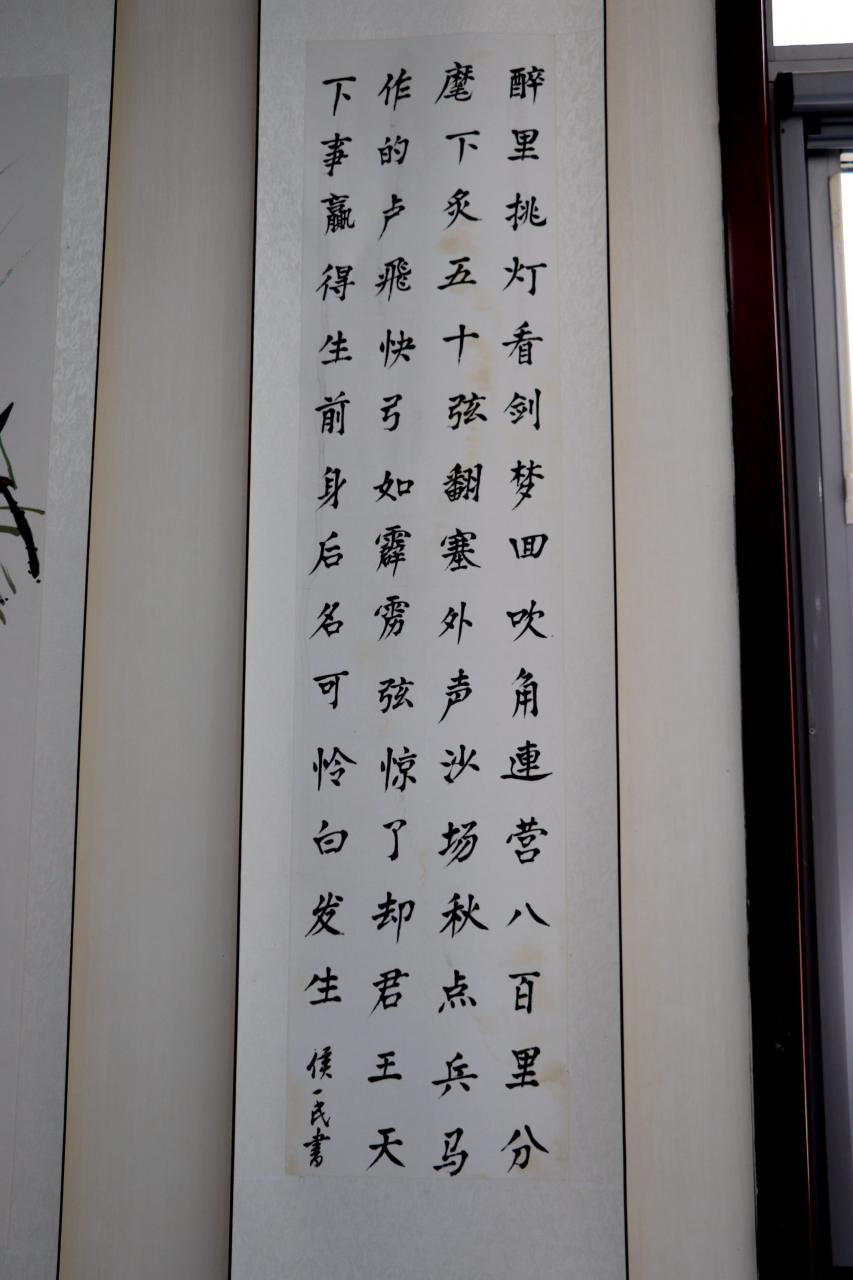 醉里挑灯看剑梦回吹角連营八百里分
麾下炙五十弦翻塞外声沙场秋点兵马
作的卢飛快弓如霹雳弦惊了却君王天
下事赢得生前身后名可怜白发生
侯一民书